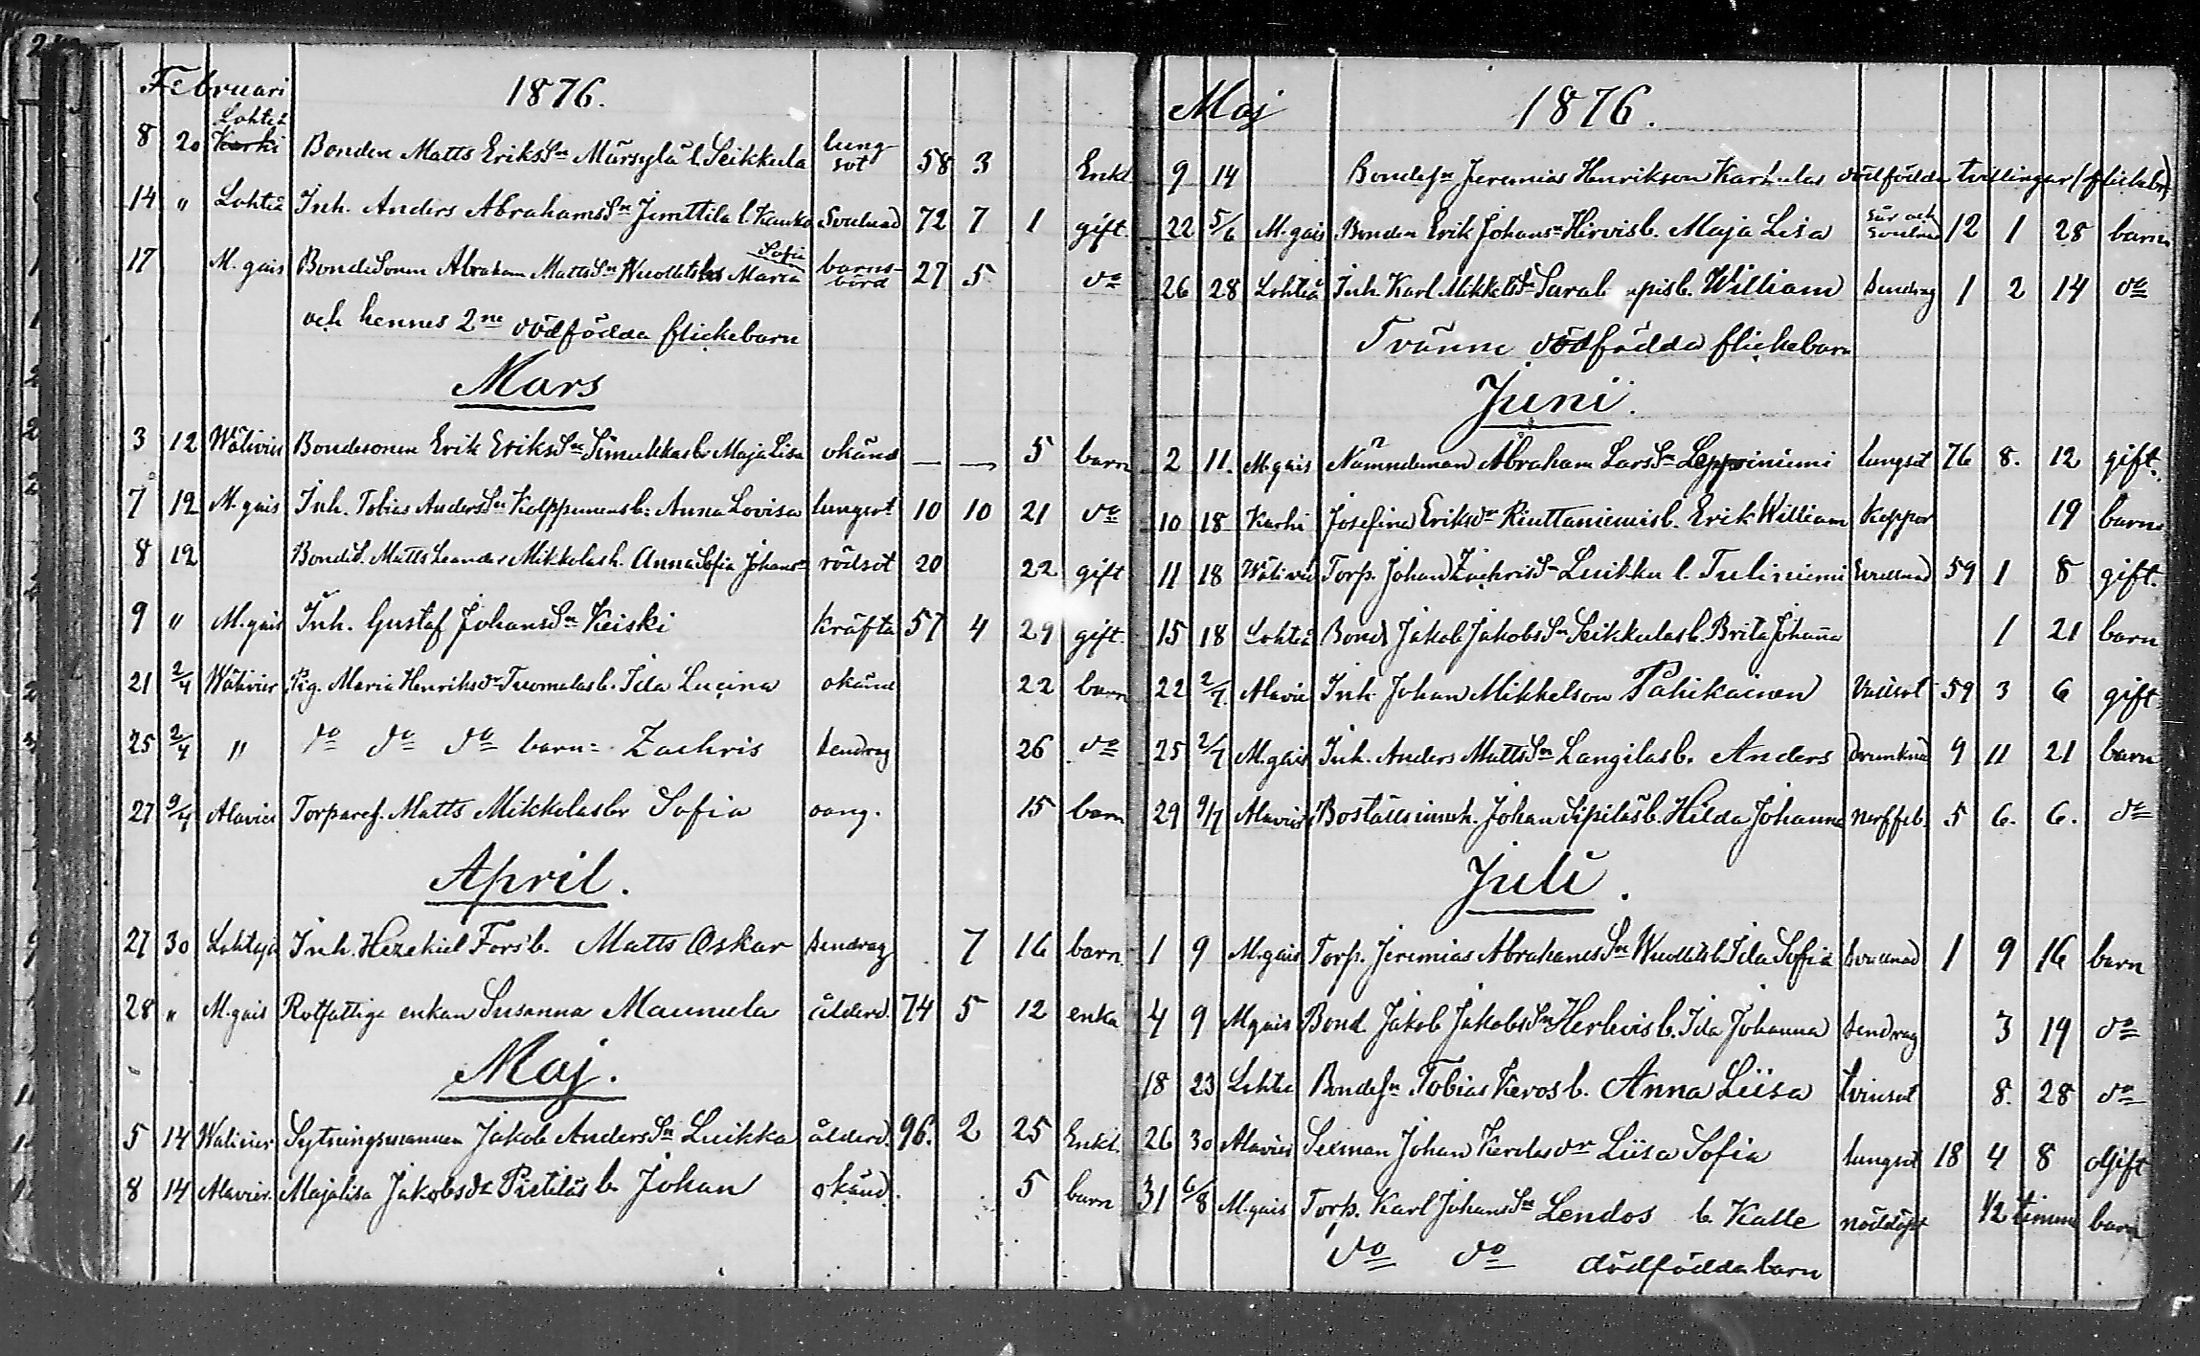 Februari 1876.
8 20 Lohteå Karhi Bonden Matts Eriks Sn Märsylä l. Seikkula lungsot 58 3 Enkl.
14 " Lohteå Inh. Anders Abrahams Sn Jemttila l. Kauko Svullnad 72 7 1 gift.
17 M.gais Bondesonen Abraham Matts Sn Wuolletsh. Maria Sofia barnsbörd 27 5 do
och hennes 2ne dödfödda flickebarn
Mars
3 12 Wälivier Bondesonen Erik Eriks Sn Simukkasb. Maja Lisa okänd — — 5 barn
7 12 M.gais Inh. Tobias Anders Sn Kolppanensb: Anna Lovisa lungsot 10 10 21 do
8 12 BondeS. Matts Leander Mikkolash. Anna Sofia Johans rödsot 20 22 gift
9 " M.gais Inh. Gustaf Johans Sn Keiski kräfta 57 4 29 gift.
21 2/4 Wälivier Pig. Maria Henriksdr Tuomalasb. Ida Lucina okänd 22 barn
25 2/4 " do do do barn: Zachris slendrag 26 do
27 9/4 Alavier Torparef. Matts Mikkolasbr Sofia oang. 15 barn
April.
27 30 Lohteja Inh. Hezekiel Fors b. Matts Oskar slendrag 7 16 barn.
28 " M.gais Rotfattige enkan Susanna Maunula ålderd. 74 5 12 enka
Maj.
5 14 Walivier Sytningsmannen Jakob Anders Sn Luikka ålderd. 96. 2 25 Enkl.
8 14 Alavier. Majalisa Jakobsdr Pietiläs b. Johan okänd. 5 barn
Maj 1876.
9 14 Bondesn Jeremias Henrikson Karhulas dödfödda tvillingar (flickebr)
22 5/6 M.gais Bonden Erik Johans Hirvis b. Maja Lisa Sår och Svullnad 12 1 28 barn
26 28 Lohteå Inh. Karl Mikkels Sn b. William slendrag 1 2 14 do
Tvänne dödfödda flickebarn
Juni.
2 11. M.gais Nämndeman Abraham Lars Sn Leppiniemi lungsot 76 8. 12 gift.
10 18 Karhi Josefina Eriksdr Riuttaniemis b. Erik William Koppor 19 barn
11 18 Wälivier Torp. Johan Zachris Sn Luikku l. Tuliniemi Svullnad 59 1 8 gift.
15 18 Lohteå Bond Jakob Jakobs Sn Seikkulas b. Brita Johana 1 21 barn
22 2/7. Alavie Inh Johan Mikkelson Pahikainen 59 3 6 gift
25 2/7 M.gais Inh. Anders Matts Sn Langilas b. Anders Drunknad 9 11 21 barn
29 9/7 Alavier Boställsinneh. Johan Sipiläs b. Hilda Johanna Nerffeb. 5 6. 6. do
Juli.
1 9 M.gais Torp. Jeremias Abrahams Sn Wuollets b. Ida Sofia Svullnad 1 9 16 barn
4 9 M.gais Bond Jakob Jakobs Sn Herlevis b. Ida Johanna slendrag 3 19 do
18 23 Lohtea Bondesn Tobias Keros b. Anna Liisa tvinsot 8. 28 do
26 30 Alavier Sexman Johan Kerolas dr Liisa Sofia lungsot 18 4 8 ogift
31 6/8 M.gais Torp. Karl Johans Sn Lendos b. Kalle nöddöpt 1/2 timme barn
do do dödfödda barn